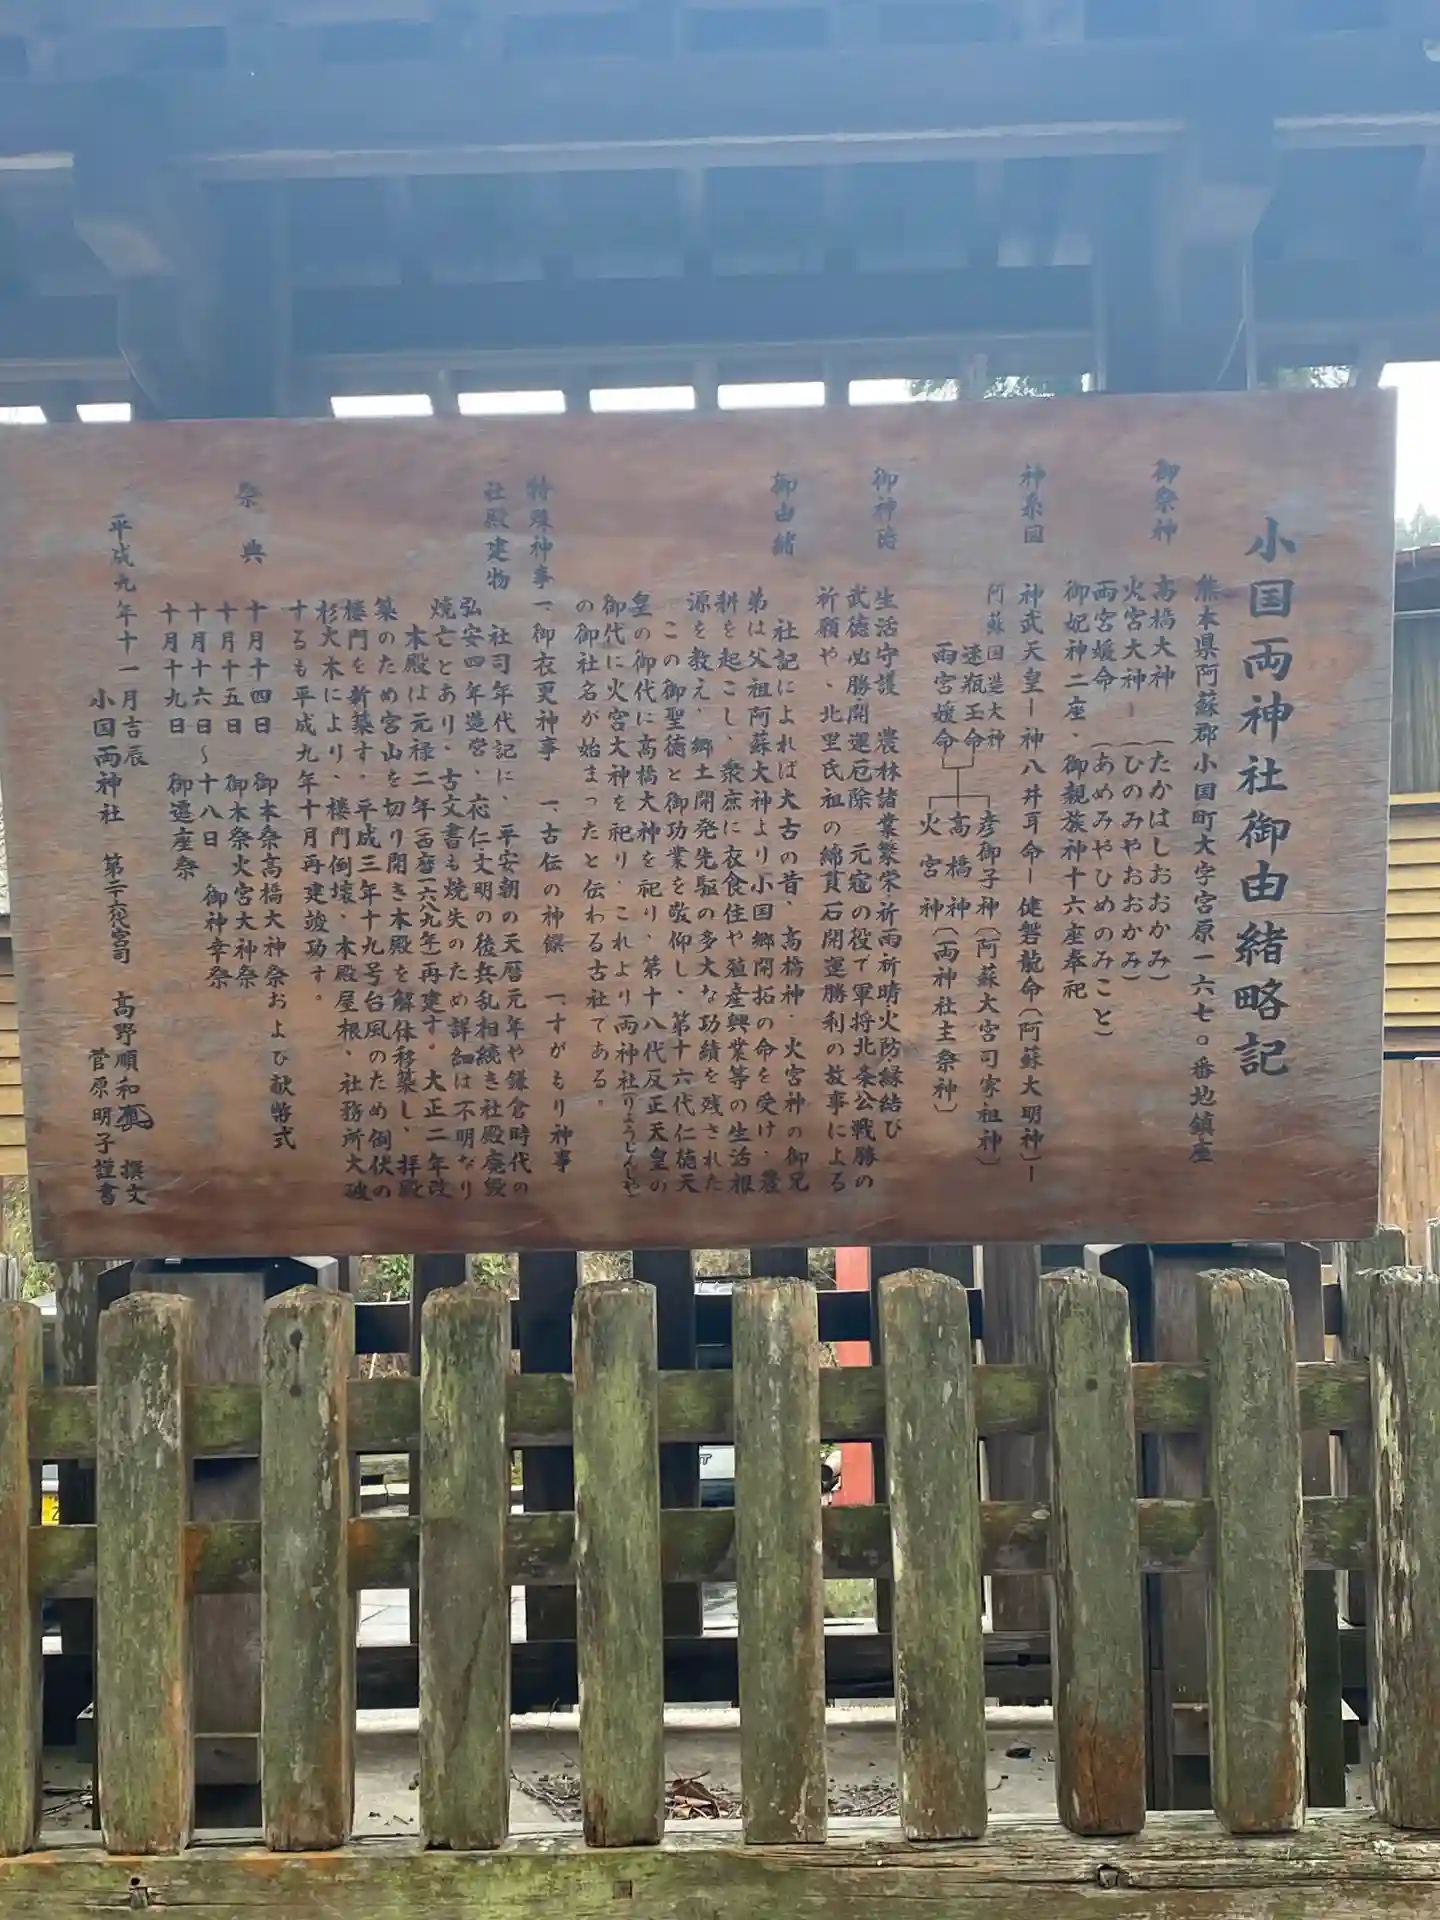 小国両神社御由緒略記
熊本県阿蘇郡小国町大字宮原一六七〇番地鎮座
御祭神
高橋大神 (たかはしおおかみ)
火宮大神 (ひのみやおおかみ)
雨宮媛命 (あめみやひめのみこと)
御妃神二座・御親族神十六座奉祀
神系図
神武天皇ー神八井耳命ー健磐龍命(阿蘇大明神)ー
阿蘇国造大神
速瓶玉命
雨宮媛命
彦御子神(阿蘇大宮司家祖神)
高橋神
火宮神
(両神社主祭神)
御神徳
生活守護 農林諸業繁栄・祈雨祈晴・火防・縁結び
武徳必勝開運厄除 元寇の役で軍将北条公戦勝の
祈願や、北里氏祖の綿貫石開運勝利の故事による
御由緒
社記によれば大古の昔、高橋神・火宮神の御兄
弟は父祖阿蘇大神より小国郷開拓の命を受け、農
耕を起こし、衆庶に衣食住や殖産興業等の生活根
源を教え、郷土開発先駆の多大な功績を残された
この御聖徳と御功業を敬仰し、第十六代仁徳天
皇の御代に高橋大神を祀り、第十八代反正天皇の
御代に火宮大神を祀り、これより両神社りょうじんじゃ
の御社名が始まったと伝わる古社である。
特殊神事
一、御衣更神事 一、古伝の神饌 一、すがもり神事
社殿建物
社司年代記に、平安朝の天暦元年や鎌倉時代の
弘安四年造営、応仁・文明の後兵乱相続き社殿廃毀
焼亡とあり、古文書も焼失のため詳細は不明なり
本殿は元禄二年(西暦一六八九年)再建す。大正二年改
築のため宮山を切り開き本殿を解体移築し、拝殿
楼門を新築す。平成三年十九号台風のため倒伏の
杉大木により、楼門倒壊、本殿屋根、社務所大破
するも平成九年十月再建竣功す。
祭典
十月十四日 御本祭高橋大神祭および献幣式
十月十五日 御本祭火宮大神祭
十月十六日〜十八日 御神幸祭
十月十九日 御還座祭
平成九年十一月吉辰
小国両神社 第二十六代宮司 高野順和 撰文
菅原明子謹書